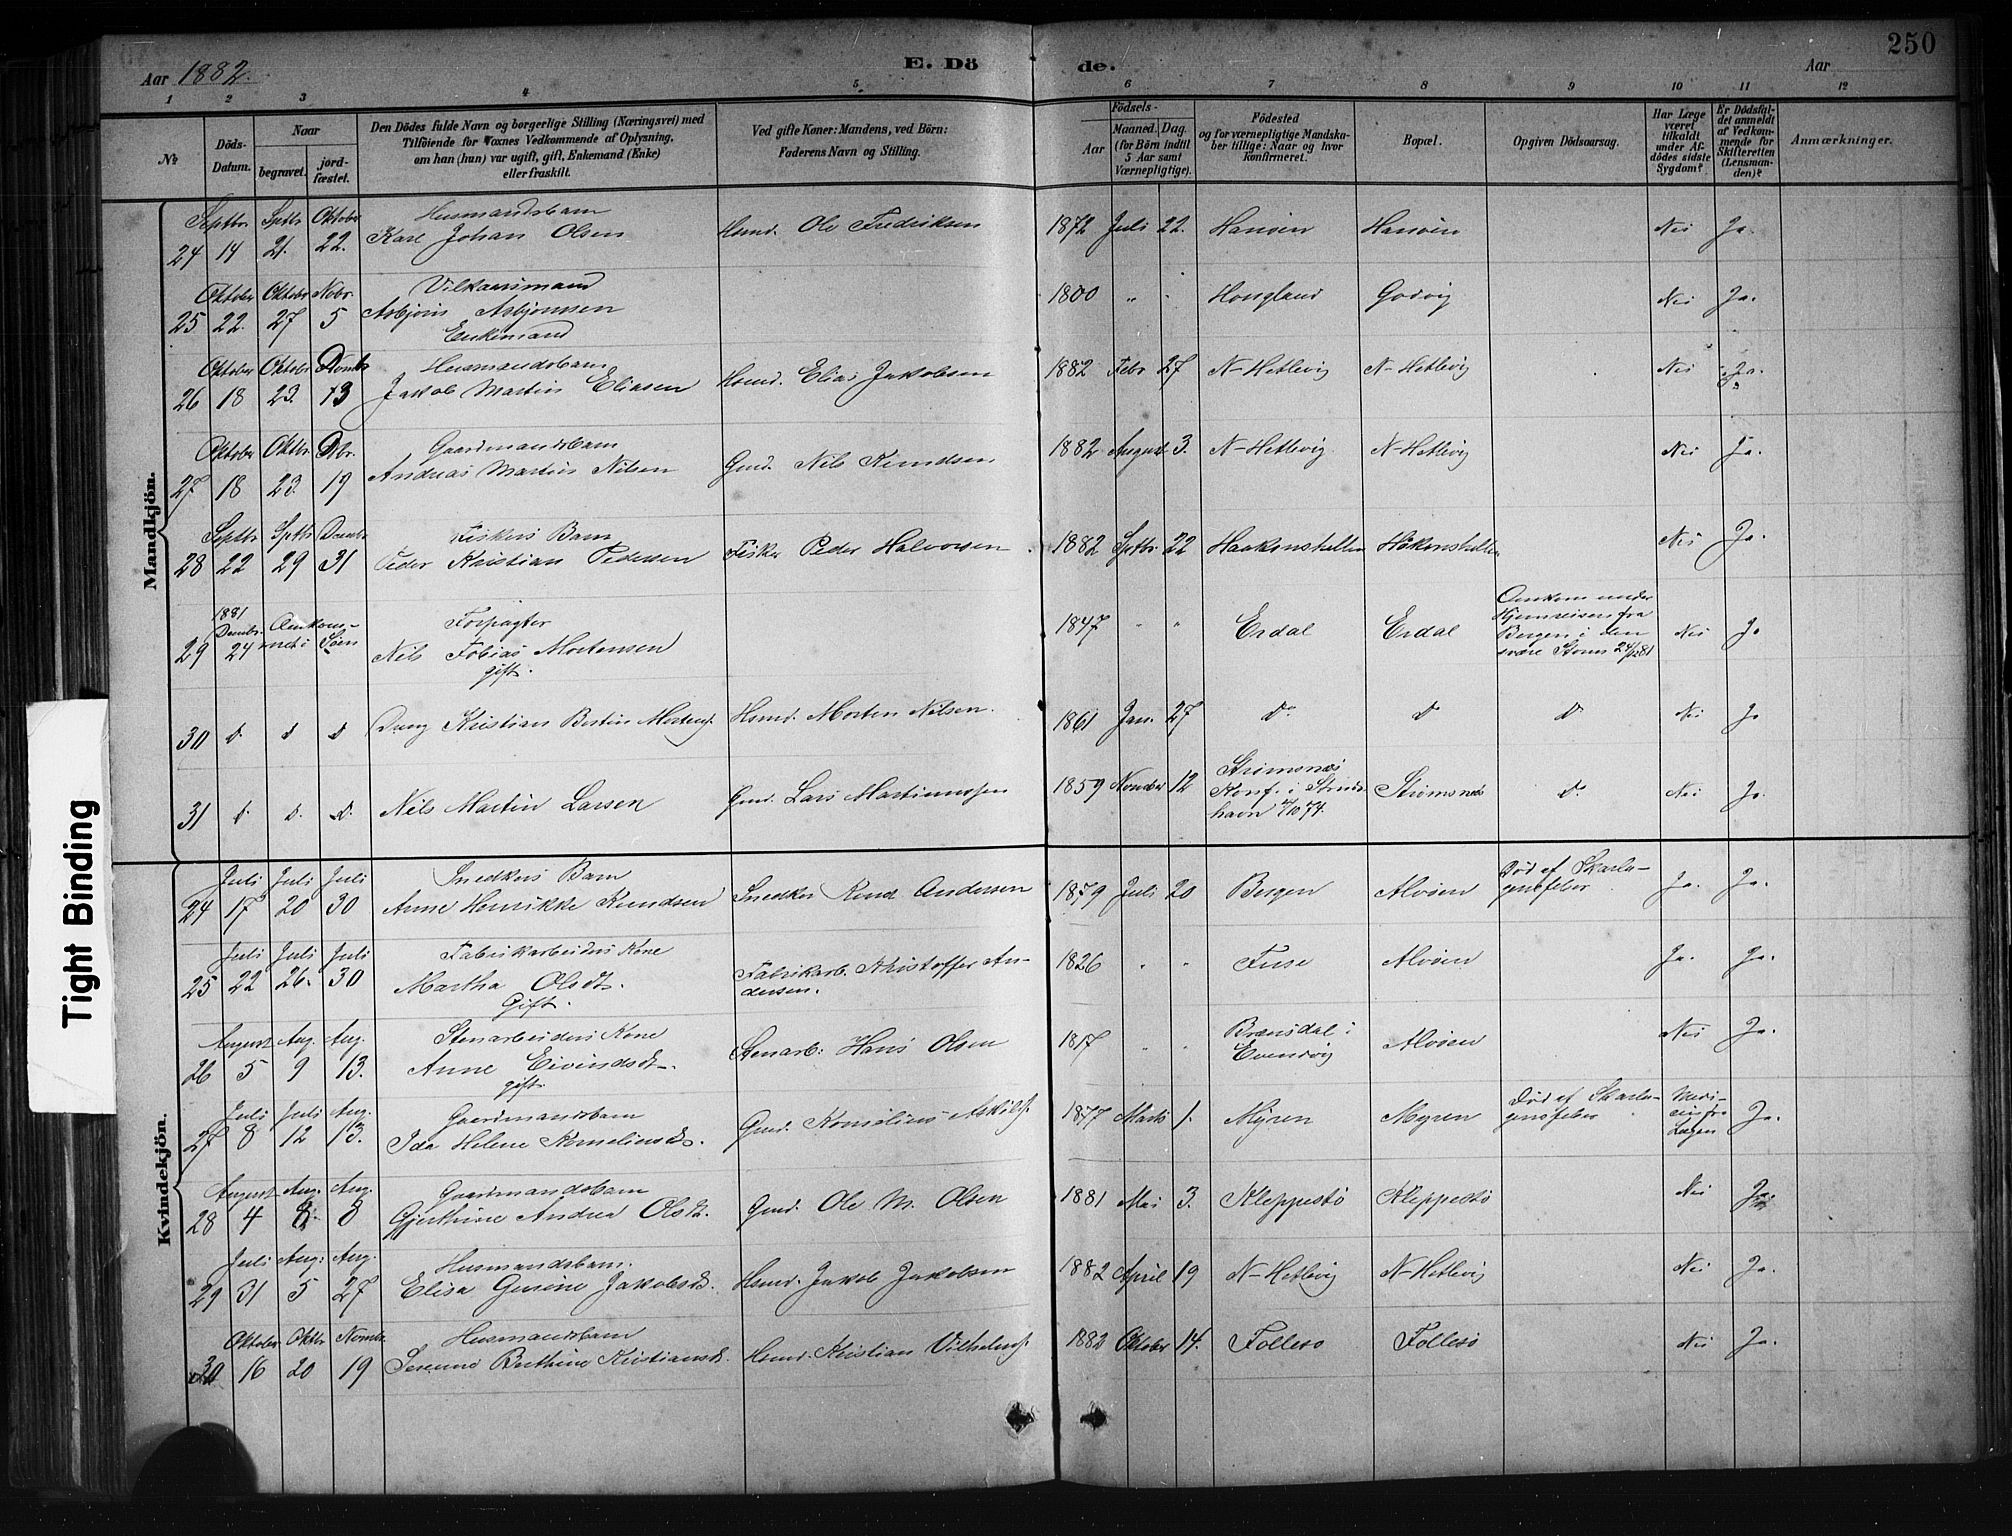 250
Aar 1882.
E. Dö
de.
Aar
1 2 3 4 5 6 7 8 9 10 11 12
№
Döds-
Datum.
Naar
begravet.
jord-
fæstet.
Den Dödes fulde Navn og borgerlige Stilling (Næringsvei) med
Tilföiende for Voxnes Vedkommende af Oplysning,
om han (hun) var ugift, gift, Enkemand (Enke)
eller fraskilt.
Ved gifte Koner: Mandens, ved Börn:
Faderens Navn og Stilling.
Födsels-
Aar
Maaned.
Dag.
(for Börn indtil
5 Aar samt
Værnepligtige).
Födested
og for værnepligtige Mandska-
ber tillige: Naar og hvor
konfirmeret.
Bopæl.
Opgiven Dödsaarsag.
Har Læge
været
tilkaldt
under Af-
dödes sidste
Sygdom?
Er Dödsfal-
det anmeldt
af Vedkom-
mende for
Skifteretten
(Lensman-
den)?
Anmærkninger.
Mandkjön.
Septbr Sptbr Oktober Husmandsbarn
24 14 21. 22. Karl Johan Olsen Hsmd. Ole Fredriksen 1872 Juli 22. Hanöen Hanöen Nei Ja.
Oktober Oktobr Nobr. Vilkaarsmand
25 22. 27 5 Asbjörn Asbjörnsen 1800 " " Hougland Godvig Nei Ja.
Enkemand
Oktober Oktobr Dcembr Husmandsbarn
26 18 23. 13 Jakob Martin Eliasen Hsmd. Elias Jakobsen 1882 Febr 27 N-Hetlevig N-Hetlevig Nei Ja.
Oktober Oktbr. Dbr. Gaardmandsbarn
27 18 23. 19 Andreas Martin Nilsen Gmd. Nils Knudsen 1882 August 3. N-Hetlevig N-Hetlevig Nei Ja.
Septbr Sptbr Dcembr Fiskers Barn
28 22 29 31 Peder Kristian Pedersen Fisker Peder Halvorsen 1882 Sptbr. 22 Haakonshellen Håkonshellen Nei Ja.
1881
Dcembr. Omkom- Forpagter
29 24 met i Söen Nils Tobias Mortensen 1847 " " Erdal Erdal Nei Ja
gift.
Omkom under
Hjemreisen fra
Bergen i den
svære Storm 24/12 81
30 d. d d Dreng Kristian Bertin Mortens. Hsmd. Morten Nilsen. 1861 Jan. 27 do d d Nei Ja
31 d. d. d. Nils Martin Larsen Gmd. Lars Martinussen 1859 Novmber 12 Strömsnæs
Konf. i
havn
Strömsnes d. Nei Ja.
Kvindekjön.
Juli Juli Juli Snedkers Barn
24 17 20 30 Anne Henrikke Knudsen Snedker Knud Andersen 1879 Juli 20 Bergen Alvöen Död af Skarla-
gensfeber Ja. Ja.
Juli Juli Juli Fabrikarbeiders Kone
25 22 26. 30 Martha Olsdt. Fabrikarb. Khristoffer An-
dersen. 1826 " " Fuse Alvöen Ja. Ja.
Gift.
August Aug. Aug. Stenarbeiders Kone
26 5 9 13. Anne Eivindsdt. Stenarb: Hans Olsen 1817 " " Brænsdal i
Evenvig Alvöen Nei Ja.
gift.
Juli Juli Aug. Gaardmandsbarn
27 8 12 13. Ida Helene Korneliusd. Gmd. Kornelius Askilds. 1877 Marts 1. Myren Myren Död af Skarla-
gensfeber Medi-
cin fra
Lægen Ja.
August Aug. Aug. Gaardmandsbarn
28 4 8 8 Gjerthine Andrea Olsdt. Gmd. Ole M. Olsen 1881 Mai 3. Kleppestö Kleppestö Nei Ja.
Juli Aug. Aug. Husmandsbarn.
29 31 5 27 Elisa Gurine Jakobsd. Hsmd. Jakob Jakobsen 1882 April 19 N-Hetlevig N-Hetlevig Nei Ja.
Oktober Oktbr Novmbr. Husmandsbarn
30 16 20 19 Berthine Kristiansd. Hsmd. Kristian Vilhelms. 1882 Oktober 14. Follesö Follesö Nei Ja.
Tight Binding